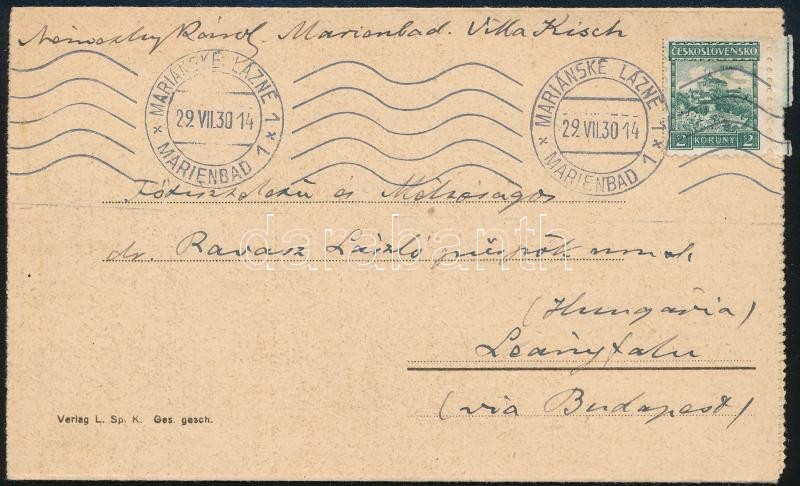 Károly Marienbad. Villa Kisch
ČESKOSLOVENSKO
2 KORUNY 2
MARIÁNSKÉ LÁZNĚ 1
29.VII.30 14
× MARIENBAD 1 ×
MARIÁNSKÉ LÁZNĚ 1
29.VII.30 14
× MARIENBAD 1 ×
Főtiszteletű és Méltóságos
dr. Ravasz László püspök úrnak
darabanth
(Hungária)
Leányfalu
(via Budapest)
Verlag L. Sp. K. Ges. gesch.